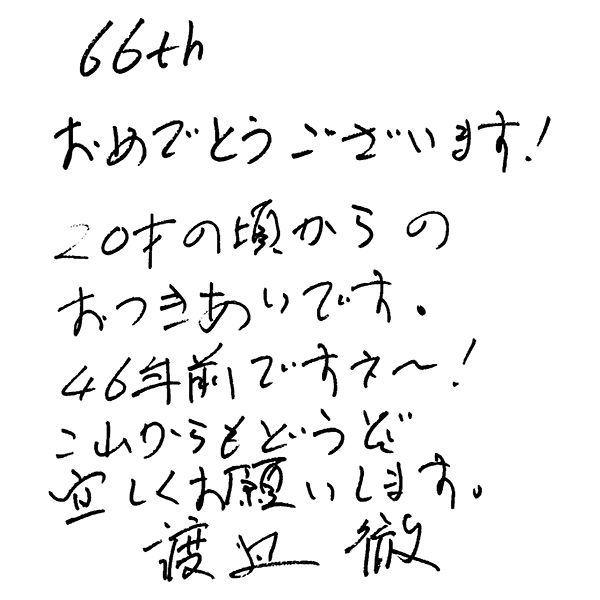 66th
おめでとうございます!
20才の頃からの
おつきあいです。
46年前ですネ〜!
これからもどうぞ
宜しくお願いします。
渡辺 徹